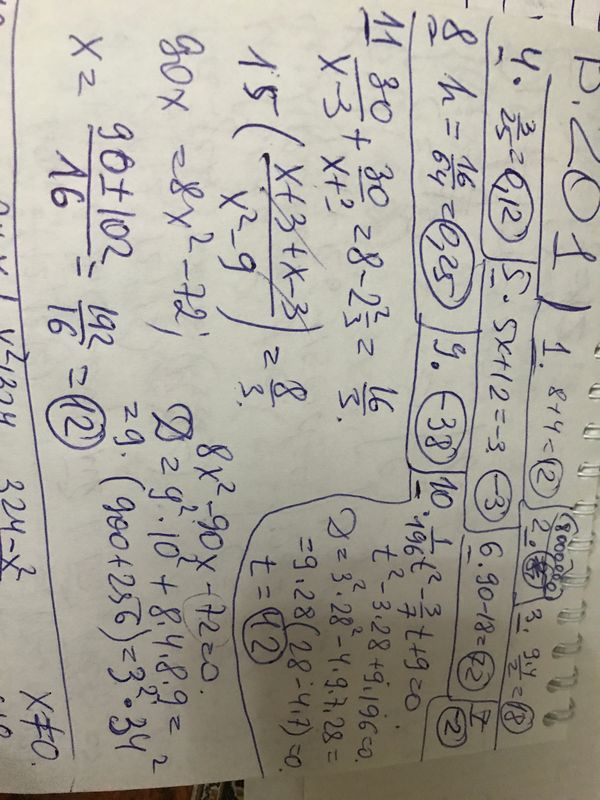 B.201) 1. 8+4=12
2. 
3. 9·4/2=18
4. 3/25=0,12
5. 5x+12=-3. -3
6. 90-18=72
7. 2
8 h=16/64=0,25
9. -38
10. 1/196 t²-3/7 t+9=0
t²-3.28+9.196=0.
D=3².28²-4.9.7.28=
=9.28(28-4.7)=0.
t=42
11 30/(x-3)+30/(x+3)=8-2 2/3=16/3.
15((x+3+x-3)/(x²-9))=8/3.
90x=8x²-72;
8x²-90x-72=0.
D=9².10²+8.4.8.9=
=9.(900+256)=3².34²
x=(90±102)/16=192/16=12
324-x²
x≠0.